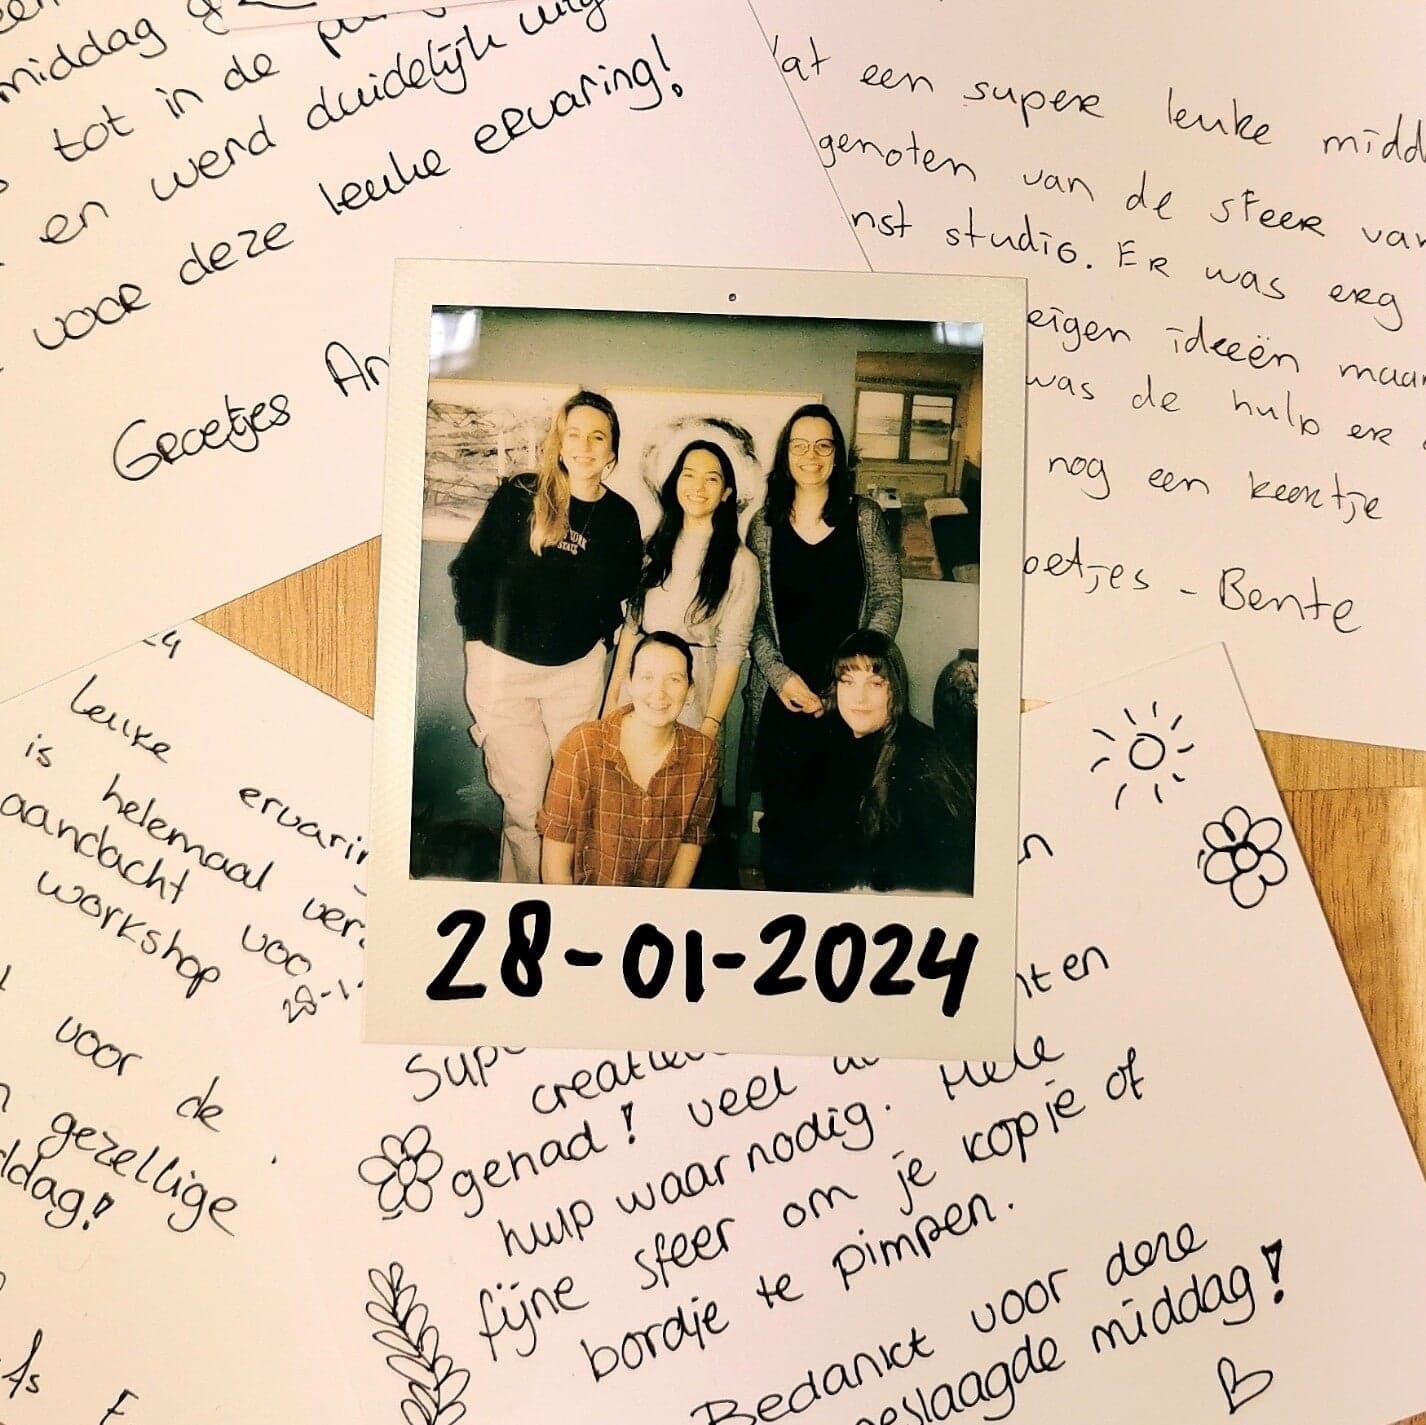 middag
tot in de
en werd duidelijk
voor deze leuke ervaring!
Groetjes
een super leuke
genoten van de sfeer van
studio. Er was erg
eigen ideeën maar
was de hulp er
nog een keertje
- Bente
NEW YORK
STATE
28-01-2024
leuke
is helemaal
aandacht
workshop
voor de
gezellige
28-1-
creatie
gehad! veel
hulp waar nodig. Hele
fijne sfeer om je kopje of
bordje te pimpen.
Bedankt voor deze
middag!